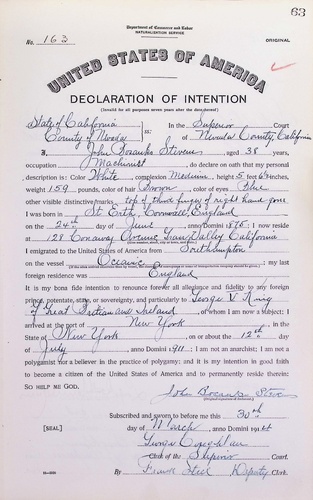 63
Department of Commerce and Labor
NATURALIZATION SERVICE
No. 163
ORIGINAL
UNITED STATES OF AMERICA
DECLARATION OF INTENTION
(Invalid for all purposes seven years after the date hereof)
State of California
County of Nevada
ss:
In the Superior Court
of Nevada County, California
I, John Bosanko Stevens, aged 38 years,
occupation Machinist, do declare on oath that my personal
description is: Color White, complexion Medium, height 5 feet 6½ inches,
weight 159 pounds, color of hair Brown, color of eyes Blue
other visible distinctive marks top of third finger of right hand gone
I was born in St Erth, Cornwall, England
on the 24th day of June, anno Domini 1875; I now reside
at 128 Conaway Avenue Grass Valley California
I emigrated to the United States of America from Southampton
on the vessel Oceanic; my last
foreign residence was England
It is my bona fide intention to renounce forever all allegiance and fidelity to any
foreign prince, potentate, state, or sovereignty, and particularly to George V King
of Great Britain and Ireland, of whom I am now a subject; I
arrived at the port of New York, in the
State of New York, on or about the 12th day
of July, anno Domini 1911; I am not an anarchist; I am not a
polygamist nor a believer in the practice of polygamy; and it is my intention in good faith
to become a citizen of the United States of America and to permanently reside therein.
SO HELP ME GOD.
John Bosanko Stevens
(Original signature of declarant)
Subscribed and sworn to before me this 30th
[SEAL]
day of March, anno Domini 19
George Coughlan
Clerk of the Superior Court.
By Steel Deputy Clerk.